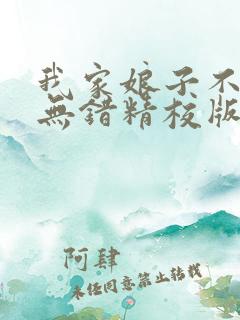 我家娘子不
無錯精校版
阿肆
未經同意禁止轉載